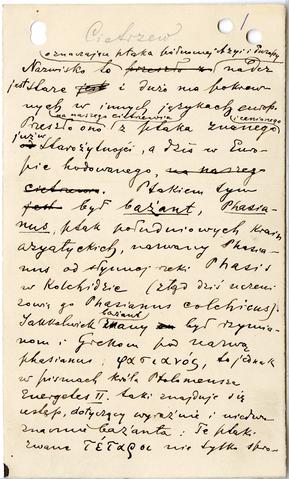 1
Cietrzew
oznaczająca ptaka północnej Azyi i Europy
Nazwisko to przeszło z nader
jest stare jest i dużo ma pokrew
nych w innych językach europ.
na naszego cietrzewia i cenionego
Przeszło ono z ptaka znanego
już w
od Starożytności, a dziś w Euro
pie hodowanego, na naszego
cietrzewia. Ptakiem tym
jest był bażant, Phasia-
nus, ptak południowych krain
azyatyckich, nazwany Phasia-
nus od słynnej rzeki Phasis
w Kolchidzie (ztąd dziś uczeni
zowią go Phasianus colchicus).
bażant
Jakkolwiek znany był rzymia-
nom i Grekom pod nazwą
phasianus, φασιανός, to jednak
w pismach króla Ptolomeusza
Energetes II. taki znajduje się
ustęp, dotyczący wyraźnie i niedwu-
znacznie bażanta: Te ptaki
zwane τέταροι nie tylko spro-